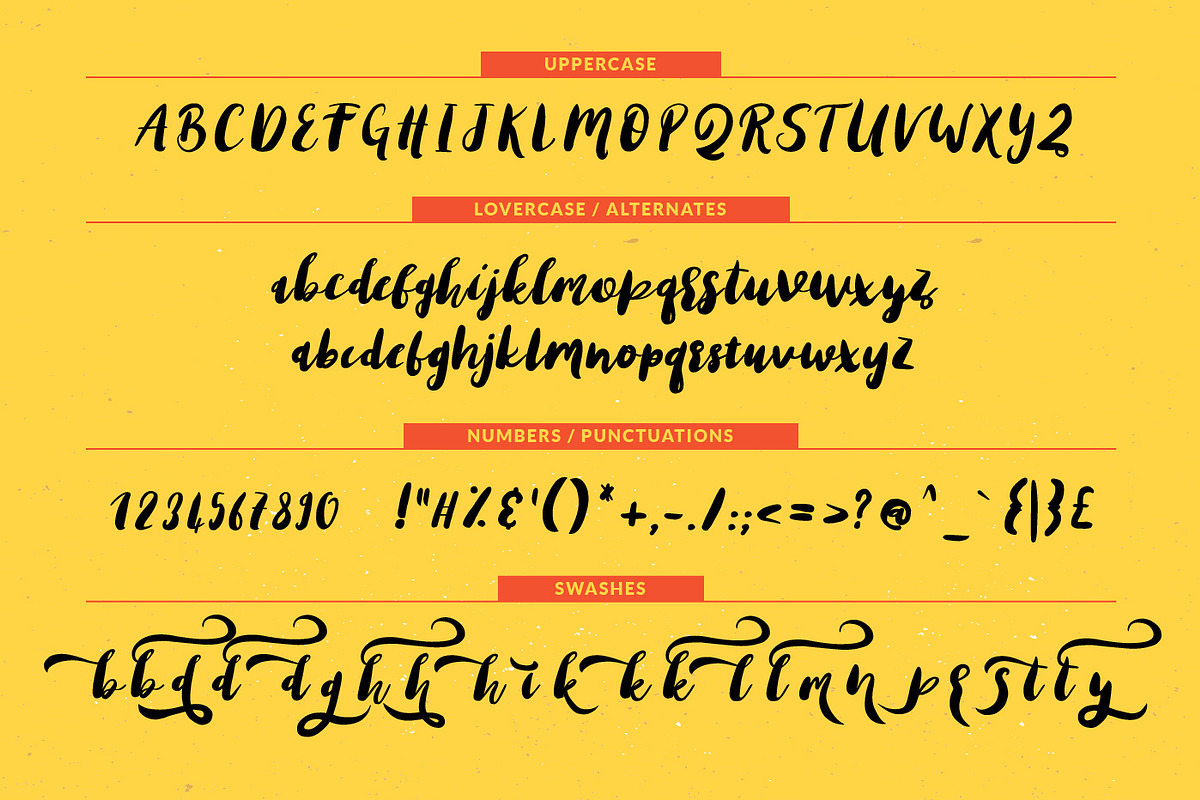 UPPERCASE
ABCDEFGHIJKLMOPQRSTUVWXYZ
LOVERCASE / ALTERNATES
abcdefghijklmopqrstuvwxyz
abcdefghjklmnopqrstuvwxyz
NUMBERS / PUNCTUATIONS
1234567890 !"H%&'()*+,-./:;<=>?@^_`{|}£
SWASHES
bbdddghhhikkklllmnpqsttty